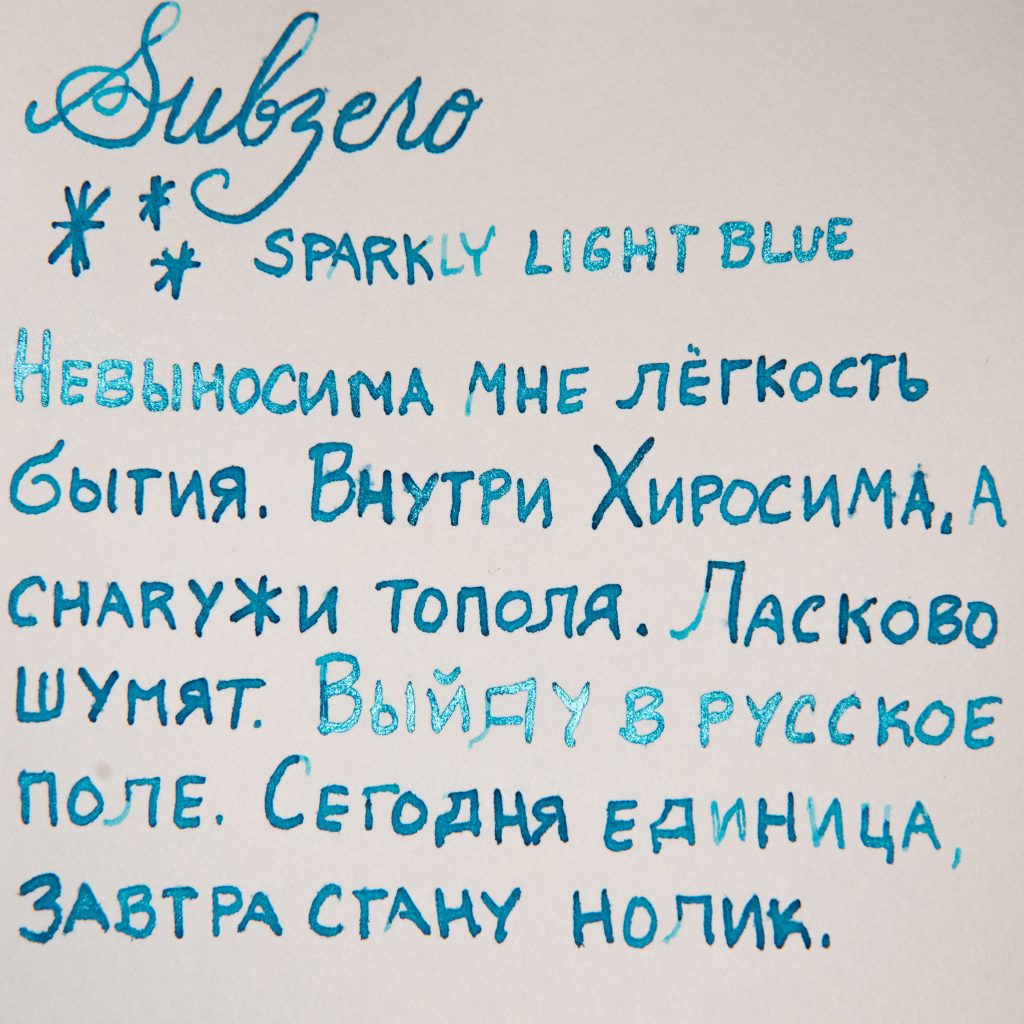 Subzero
SPARKLY LIGHT BLUE
Невыносима мне лёгкость
бытия. Внутри Хиросима, а
снаружи тополя. Ласково
шумят. Выйду в русское
поле. Сегодня единица,
завтра стану нолик.